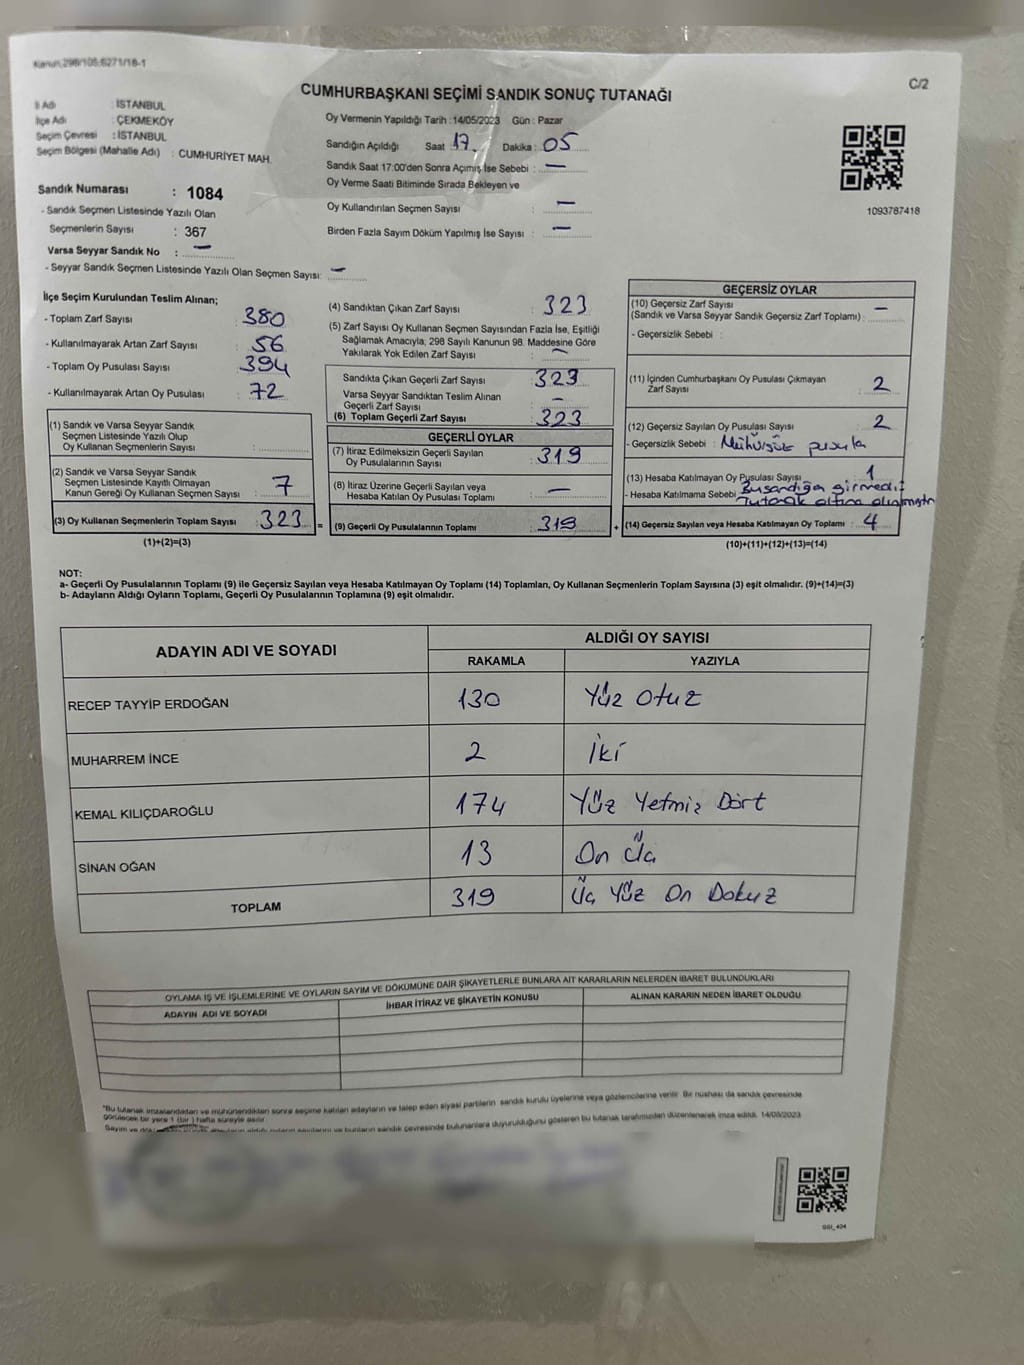 Kanun,298/105;6271/18-1
C/2
CUMHURBAŞKANI SEÇİMİ SANDIK SONUÇ TUTANAĞI
İl Adı : İSTANBUL
İlçe Adı : ÇEKMEKÖY
Seçim Çevresi : İSTANBUL
Seçim Bölgesi (Mahalle Adı) : CUMHURİYET MAH.
Sandık Numarası : 1084
- Sandık Seçmen Listesinde Yazılı Olan
Seçmenlerin Sayısı : 367
Varsa Seyyar Sandık No : —
- Seyyar Sandık Seçmen Listesinde Yazılı Olan Seçmen Sayısı: —
Oy Vermenin Yapıldığı Tarih :14/05/2023 Gün : Pazar
Sandığın Açıldığı Saat 17. Dakika : 05
Sandık Saat 17:00'den Sonra Açımış İse Sebebi : —
Oy Verme Saati Bitiminde Sırada Bekleyen ve
Oy Kullandırılan Seçmen Sayısı : —
Birden Fazla Sayım Döküm Yapılmış İse Sayısı : —
1093787418
İlçe Seçim Kurulundan Teslim Alınan;
- Toplam Zarf Sayısı : 380
- Kullanılmayarak Artan Zarf Sayısı : 56
- Toplam Oy Pusulası Sayısı : 394
- Kullanılmayarak Artan Oy Pusulası : 72
(1) Sandık ve Varsa Seyyar Sandık
Seçmen Listesinde Yazılı Olup
Oy Kullanan Seçmenlerin Sayısı :
(2) Sandık ve Varsa Seyyar Sandık
Seçmen Listesinde Kayıtlı Olmayan
Kanun Gereği Oy Kullanan Seçmen Sayısı : 7
(3) Oy Kullanan Seçmenlerin Toplam Sayısı : 323 =
(1)+(2)=(3)
(4) Sandıktan Çıkan Zarf Sayısı : 323
(5) Zarf Sayısı Oy Kullanan Seçmen Sayısından Fazla İse, Eşitliği
Sağlamak Amacıyla, 298 Sayılı Kanunun 98. Maddesine Göre
Yakılarak Yok Edilen Zarf Sayısı : —
Sandıkta Çıkan Geçerli Zarf Sayısı : 323
Varsa Seyyar Sandıktan Teslim Alınan
Geçerli Zarf Sayısı : —
(6) Toplam Geçerli Zarf Sayısı : 323
GEÇERLİ OYLAR
(7) İtiraz Edilmeksizin Geçerli Sayılan
Oy Pusulalarının Sayısı : 319
(8) İtiraz Üzerine Geçerli Sayılan veya
Hesaba Katılan Oy Pusulası Toplamı : —
(9) Geçerli Oy Pusulalarının Toplamı : 319 +
GEÇERSİZ OYLAR
(10) Geçersiz Zarf Sayısı
(Sandık ve Varsa Seyyar Sandık Geçersiz Zarf Toplamı) : —
- Geçersizlik Sebebi :
(11) İçinden Cumhurbaşkanı Oy Pusulası Çıkmayan
Zarf Sayısı : 2
(12) Geçersiz Sayılan Oy Pusulası Sayısı : 2
- Geçersizlik Sebebi : Mühürsüz pusula
(13) Hesaba Katılmayan Oy Pusulası Sayısı : 1
- Hesaba Katılmama Sebebi : Bu sandığa girmedi:
Tutanak altına alınmıştır
(14) Geçersiz Sayılan veya Hesaba Katılmayan Oy Toplamı : 4
(10)+(11)+(12)+(13)=(14)
NOT:
a- Geçerli Oy Pusulalarının Toplamı (9) ile Geçersiz Sayılan veya Hesaba Katılmayan Oy Toplamı (14) Toplamları, Oy Kullanan Seçmenlerin Toplam Sayısına (3) eşit olmalıdır. (9)+(14)=(3)
b- Adayların Aldığı Oyların Toplamı, Geçerli Oy Pusulalarının Toplamına (9) eşit olmalıdır.
ADAYIN ADI VE SOYADI
ALDIĞI OY SAYISI
RAKAMLA YAZIYLA
RECEP TAYYİP ERDOĞAN 130 Yüz Otuz
MUHARREM İNCE 2 İki
KEMAL KILIÇDAROĞLU 174 Yüz Yetmiş Dört
SİNAN OĞAN 13 On Üç
TOPLAM 319 Üç Yüz On Dokuz
OYLAMA İŞ VE İŞLEMLERİNE VE OYLARIN SAYIM VE DÖKÜMÜNE DAİR ŞİKAYETLERLE BUNLARA AİT KARARLARIN NELERDEN İBARET BULUNDUKLARI
ADAYIN ADI VE SOYADI İHBAR İTİRAZ VE ŞİKAYETİN KONUSU ALINAN KARARIN NEDEN İBARET OLDUĞU
"Bu tutanak imzalandıktan ve mühürlendikten sonra seçime katılan adayların ve talep eden siyasi partilerin sandık kurulu üyelerine veya gözlemcilerine verilir. Bir nüshası da sandık çevresinde
görülecek bir yere 1 (bir) hafta süreyle asılır.
Sayım ve dök aldığı oyların sayılarını ve bunların sandık çevresinde bulunanlara duyurulduğunu gösteren bu tutanak tarafımızdan düzenlenerek imza edildi. 14/05/2023